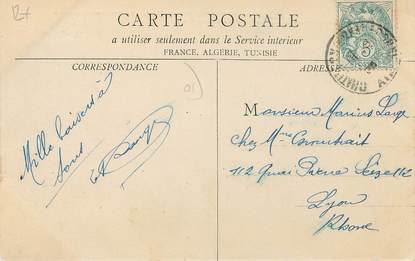 R+
CARTE POSTALE
a utiliser seulement dans le Service interieur
FRANCE, ALGÉRIE, TUNISIE
CORRESPONDANCE
ADRESSE
Mille baisers à
tous
Monsieur Marius
chez Mme
112 Quai Pierre Scize
Lyon
Rhone